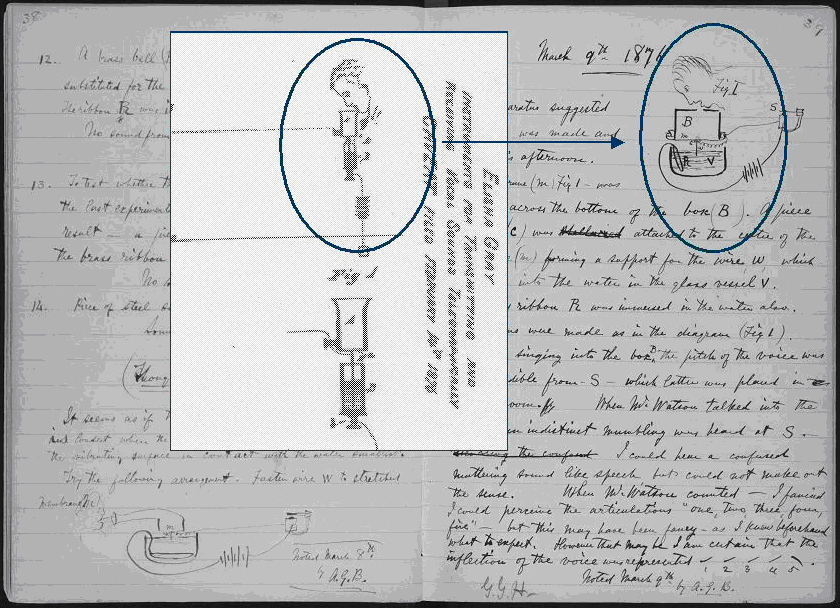 38
12. A brass bell
substituted for the
The ribbon R was
No sound from
13. To test whether
the last experiment
result
the brass ribbon
No
14. Piece of steel
It seems as if
the vibrating surface in contact with the water
Try the following arrangement. Fasten wire W to stretched
membrane (m).
m
Noted March 8th
by A.G.B.
ELISHA GRAY
INSTRUMENTS FOR TRANSMITTING AND
RECEIVING VOCAL SOUNDS TELEGRAPHICALLY
CAVEAT FILED FEBRUARY 14th 1876
Fig 1
39
March 9th 1876
Fig 1
S
B
m
R V
apparatus suggested
was made and
afternoon.
(m) Fig 1 - was
across the bottom of the box (B). A piece
(c) was attached to the centre of the
(m) forming a support for the wire W, which
into the water in the glass vessel V.
ribbon R was immersed in the water also.
were made as in the diagram (Fig 1).
singing into the box B, the pitch of the voice was
from S - which latter was placed in
room. When Mr Watson talked into the
an indistinct mumbling was heard at S -
the confused I could hear a confused
muttering sound like speech but could not make out
the sense. When Mr Watson counted - I fancied
I could perceive the articulations "one, two, three, four,
five" - but this may have been fancy - as I knew beforehand
what to expect. However that may be I am certain that the
inflection of the voice was represented
1 2 3 4 5
Noted March 9th by A.G.B.
G.G.H.